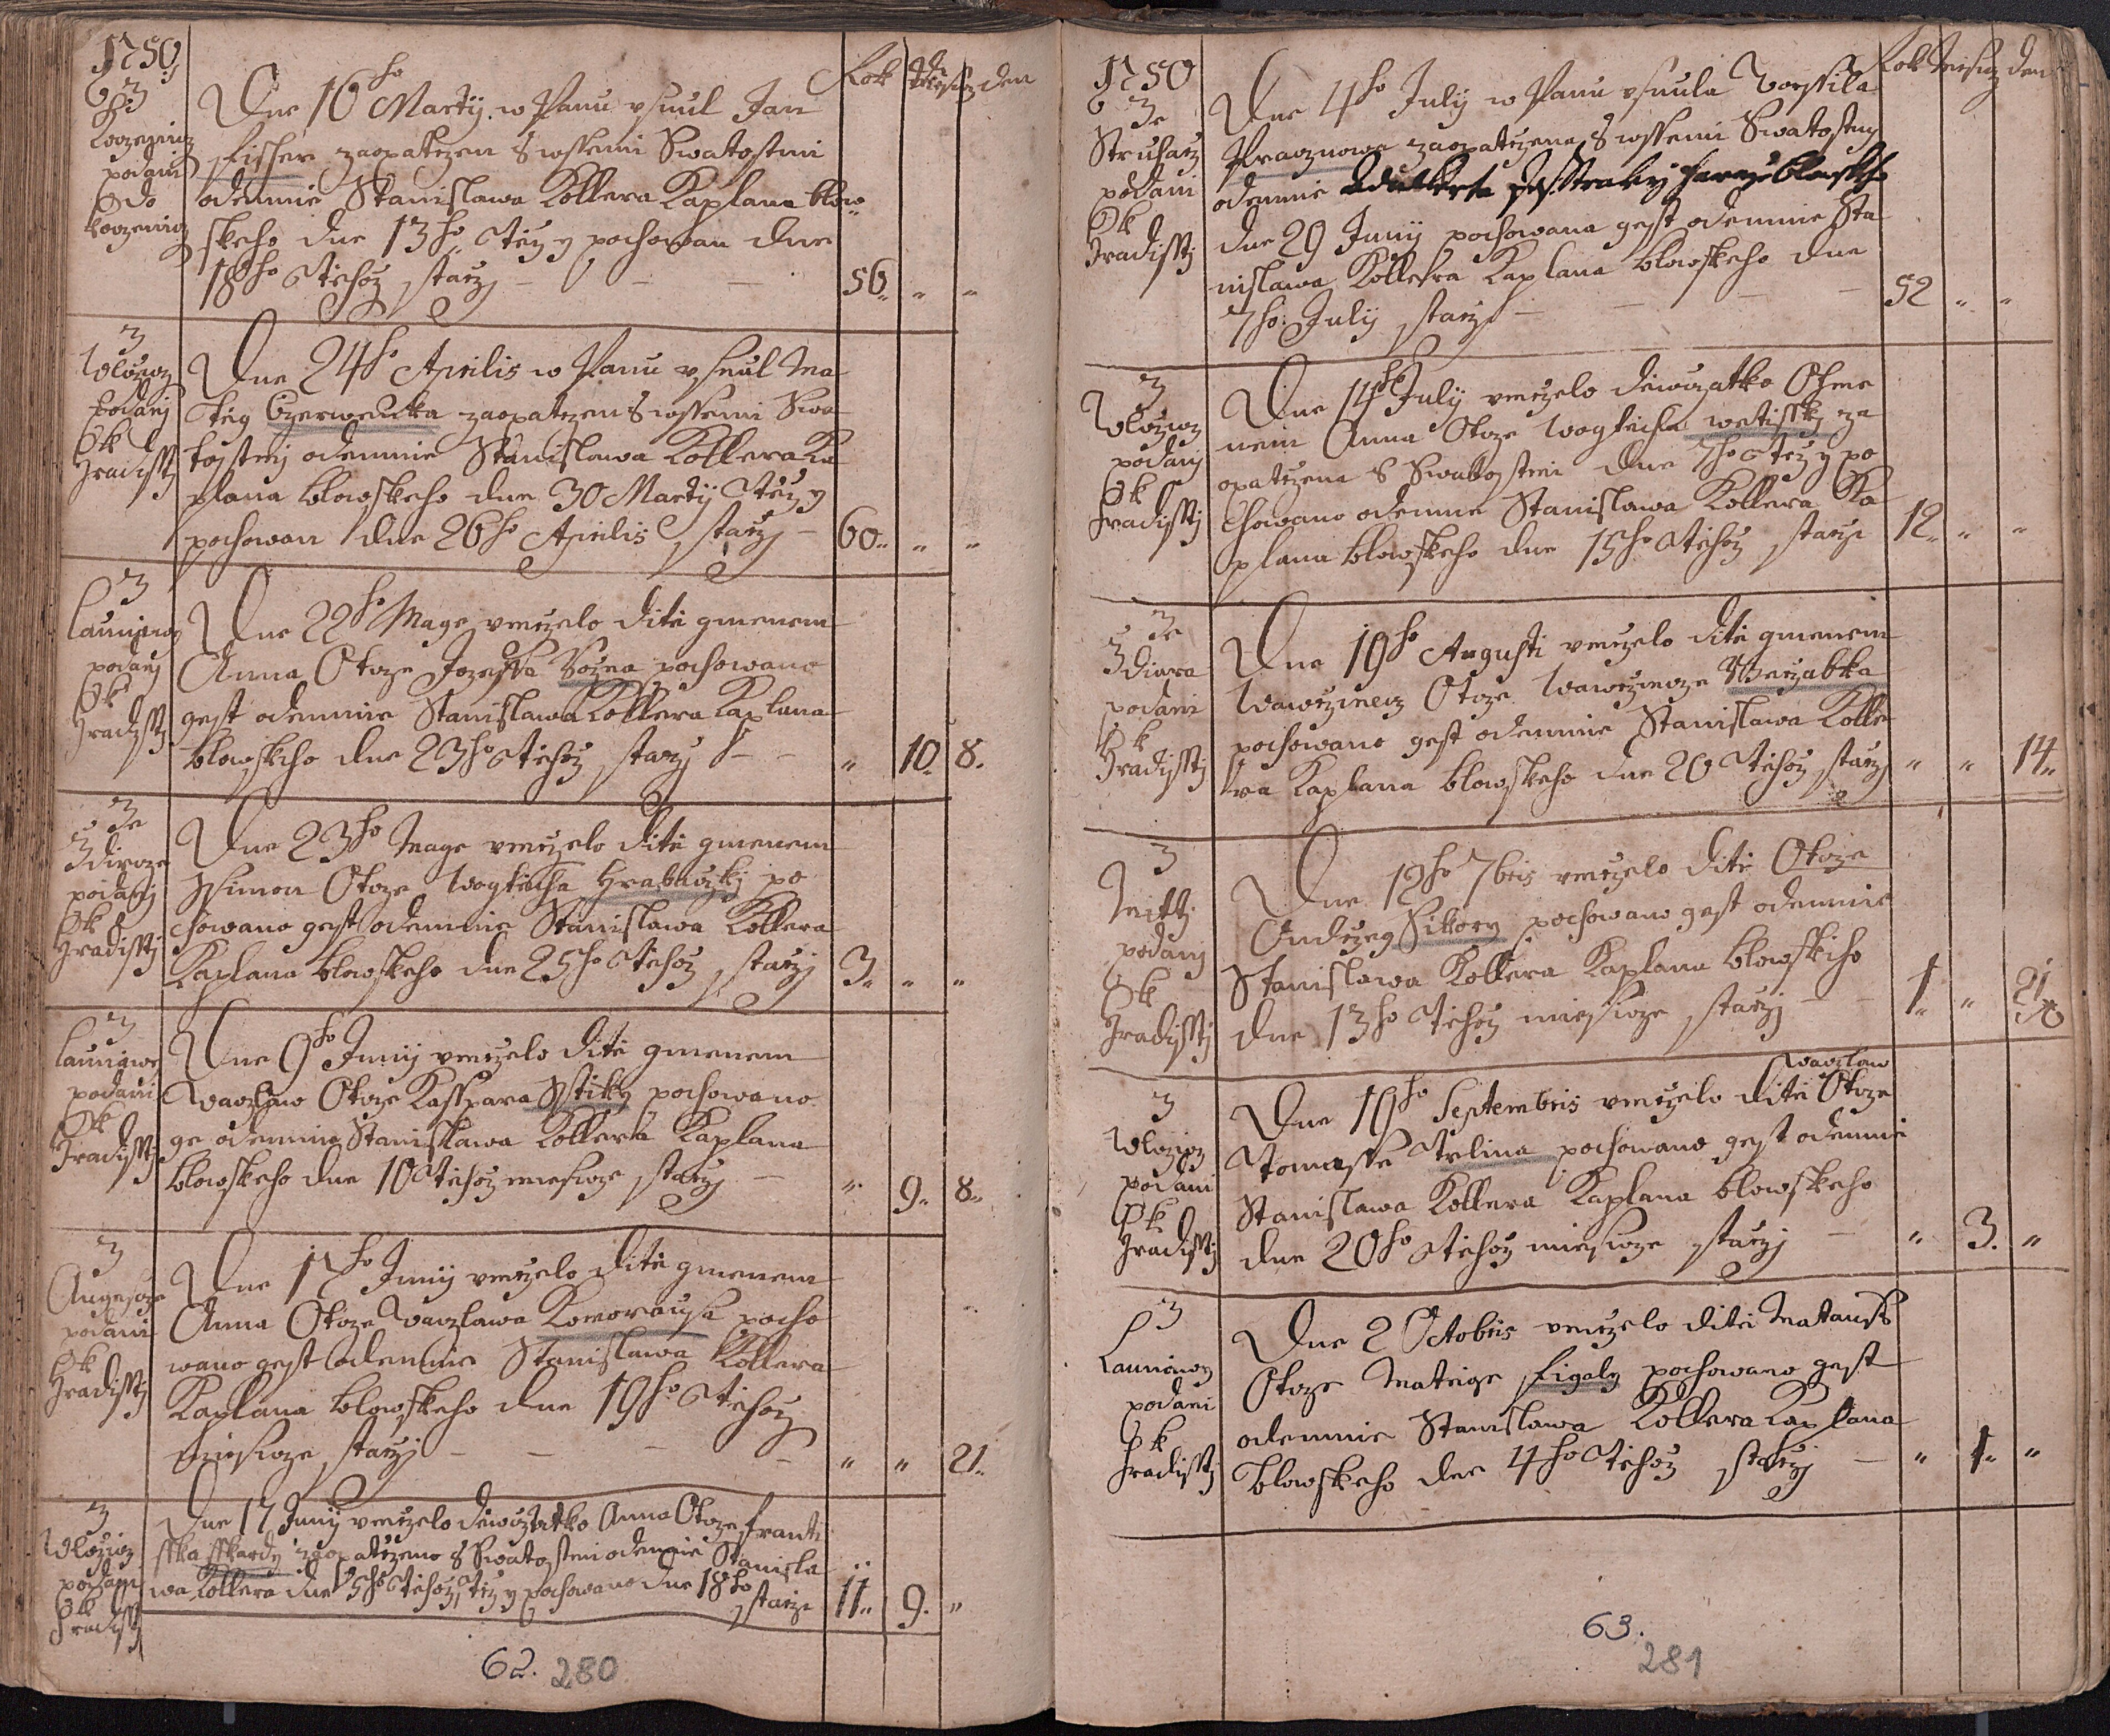 1750
Rok
den
Dne 16ho Martij w Panu vsnul Jan
Fissher zaopatrzen S wssemi Swatostmi
odemnie Stanislawa Kollera Kaplana blow
skeho dne 13ho, Teiz y pochowan dne
18ho Tehoz starzj
56
podani
Z
podanj
K
Hradissti
Dne 24ho Aprilis w Panu vsnul Ma
teig Czerwenka zaopatrzen S wssemi Swa
tostmj odemnie Stanislawa Kollera Ka
plana blowskeho dne 30 Martij Teiz y
pochowan dne 26ho Aprilis starzj
60
Z
podanj
K
Hradissti
Dne 22ho Mage vmrzelo dite gmenem
Anna Otcze Jozeffa pochowano
gest odemnie Stanislawa Kollera Kaplana
blowskeho dne 23ho Tehoz starzj
10. 8.
Ze
podanj
K
Hradissti
Dne 23ho Mage vmrzelo dite gmenem
Ssimon Otcze Wogtiecha po
chowano gest odemnie Stanislawa Kollera
Kaplana blowskeho dne 25ho Tehoz starzj
3
Z
podani
K
Hradissti
Dne 9ho Junij vmrzelo dite gmenem
Waczlaw Otcze Kasspara pochowano
ge odemnie Stanislawa Kollera Kaplana
blowskeho dne 10 Tehoz miesicze starzj
9 8
Z
podani
K
Hradissti
Dne Junij vmrzelo dite gmenem
Anna Otcze Waczlawa pocho
wano gest odemnie Stanislawa Kollera
Kaplana blowskeho dne 19ho Tehoz
miesicze starzj
21
Z
podani
K
Hradissti
Dne 17 Junij vmrzelo diewczatko Anna Otcze Franti
sska zaopatrzeno S Swatostmi odemnie Stanisla
wa Kollera dne 15ho Tehoz, Teiz y pochowano dne 18ho
starze
11 9.
62. 280
1750
Rok Miesicz den
Ze
podani
K
Hradissti
Dne 4ho July w Panu vsnula Worssila
zaopatrzena S wssemi Swatostmj
odemnie
dne 29 Junij pochowana gest odemnie Sta
nislawa Kollera Kaplana blowskeho dne
7ho July starzi
52
Z
podanj
K
Hradissti
Dne 14ho July vmrzelo diewczatko Gme
nem Anna Otcze Wogtiecha za
opatrzena S Swatostmi dne Teiz y po
chowano odemne Stanislawa Kollera Ka
plana blowskeho dne 15ho Tehoz starzi
12
Ze
podani
K
Hradissti
Dne 19ho Augusti vmrzelo dite gmenem
Wawrzinecz Otcze Wawrzincze
pochowano gest odemnie Stanislawa Kolle
ra Kaplana blowskeho dne 20 Tehoz starzj
14
Z
podanj
K
Hradissti
Dne 12ho 7bris vmrzelo dite Otcze
Ondrzeg Sikory pochowano gest odemnie
Stanislawa Kollera Kaplana blowskeho
dne 13ho Tehoz miesicze starzj
1 21
Z
podani
K
Hradissti
Waczlaw
Dne 19ho Septembris vmrzelo dite Otcze
Tomasse Trlina pochowano gest odemnie
Stanislawa Kollera Kaplana blowskeho
dne 20ho Tehoz miesicze starzj
3.
Z
podani
K
Hradissti
Dne 2 Octobris vmrzelo dite Matauss
Otcze Mateige Figaly pochowano gest
odemnie Stanislawa Kollera Kaplana
blowskeho dne 4ho Tehoz starzj
1
63.
281